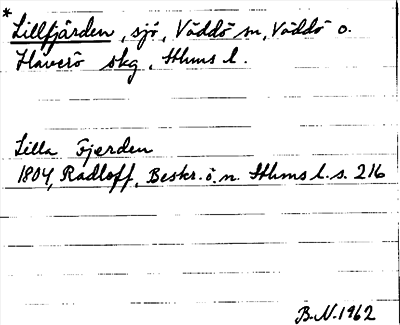 * Lillfjärden, sjö, Väddö sn, Väddö o.
Häverö skg, Sthms l.
Lilla Fjerden
1804, Radloff, Beskr. ö. n. Sthms l. s. 216
B.N. 1962